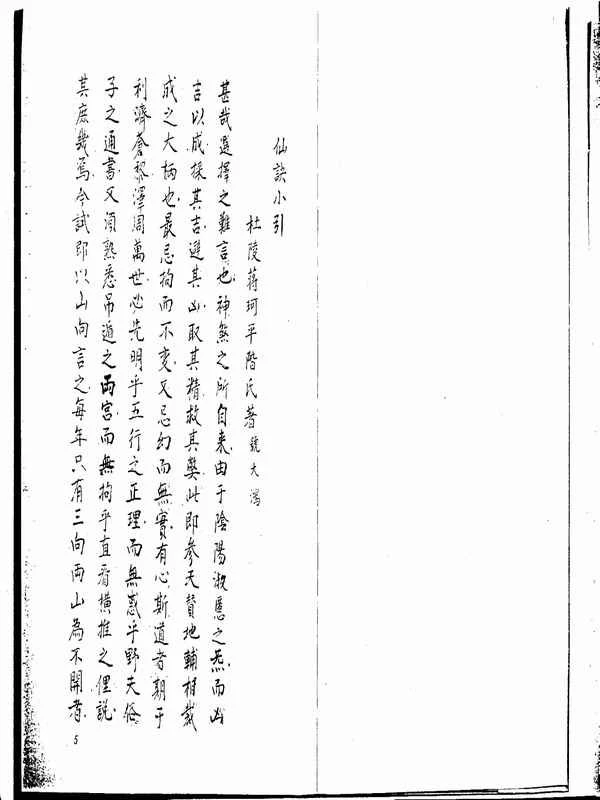 仙訣小引
杜陵蔣珂平階氏著 號大鴻
甚哉選擇之難言也神煞之所自来由于陰陽淑慝之炁而凶
吉以成採其吉避其凶取其精救其弊此即參天贊地輔相裁
成之大柄也最忌拘而不变又忌幻而無實有心斯道者期于
利濟蒼黎澤周萬世必先明乎五行之正理而無惑乎野夫俗
子之通書又須熟悉吊遁之両宮而無拘乎直看橫推之俚說
其庶幾焉今試即以山向言之每年只有三向両山為不開者
5